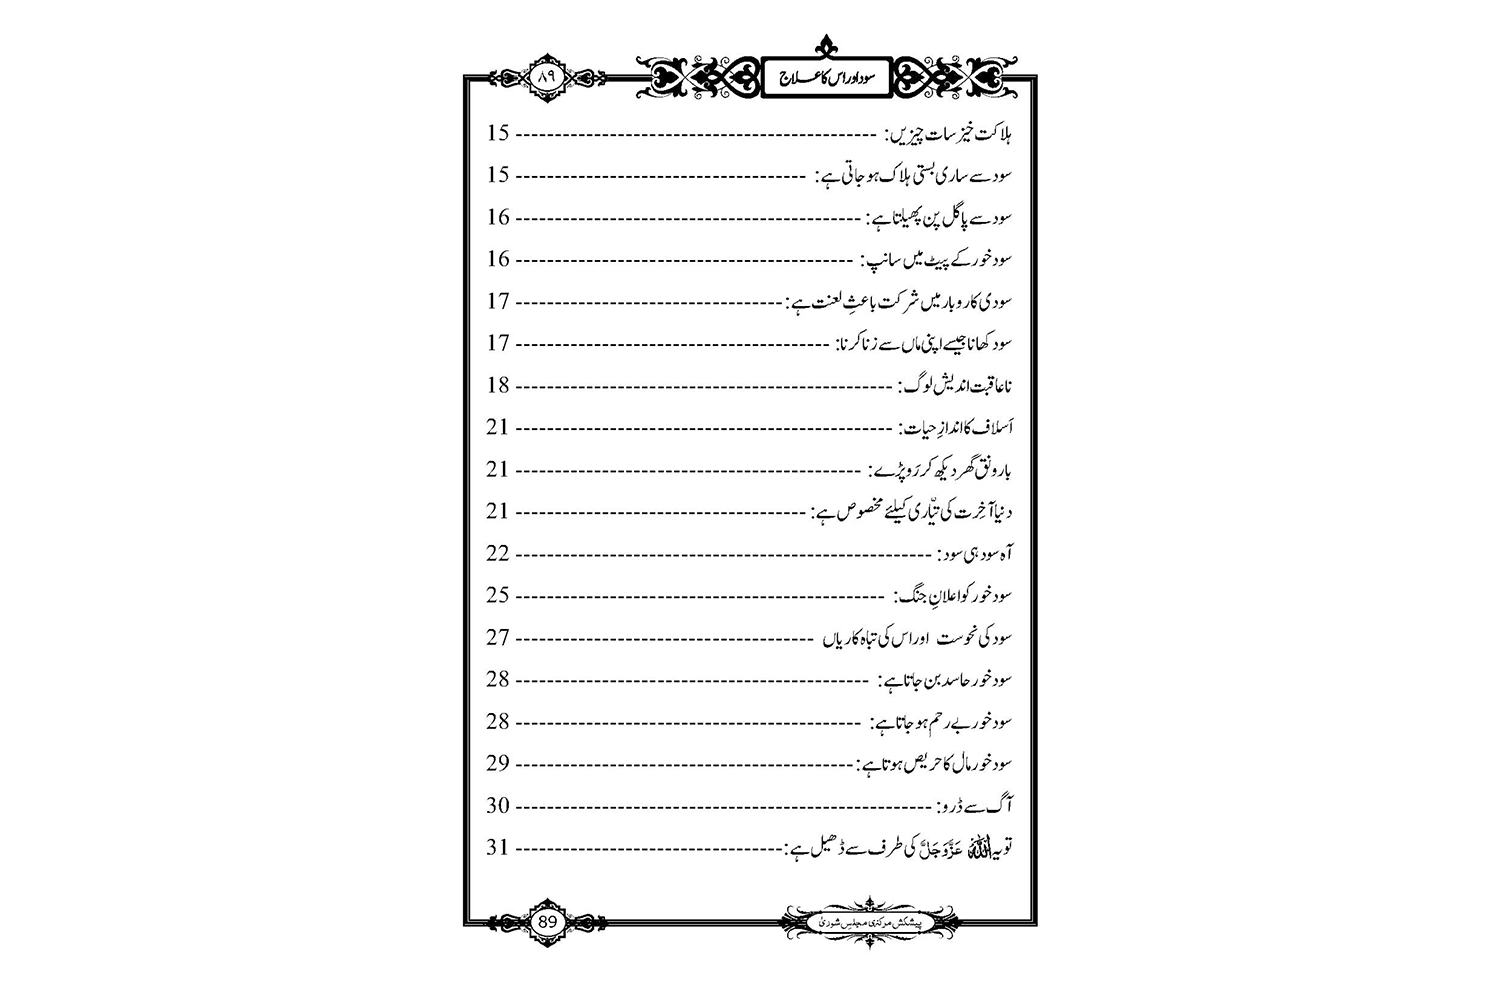 سود اور اس کا علاج ۸۹
ہلاکت خیز سات چیزیں: 15
سود سے ساری بستی ہلاک ہو جاتی ہے: 15
سود سے پاگل پن پھیلتا ہے: 16
سود خور کے پیٹ میں سانپ: 16
سودی کاروبار میں شرکت باعثِ لعنت ہے: 17
سود کھانا جیسے اپنی ماں سے زنا کرنا: 17
ناعاقبت اندیش لوگ: 18
اَسلاف کا اندازِ حیات: 21
بارونق گھر دیکھ کر رَو پڑے: 21
دنیا آخِرت کی تیّاری کیلئے مخصوص ہے: 21
آہ سود ہی سود: 22
سود خور کو اعلانِ جنگ: 25
سود کی نحوست اور اس کی تباہ کاریاں 27
سود خور حاسد بن جاتا ہے: 28
سود خور بے رحم ہو جاتا ہے: 28
سود خور مال کا حریص ہوتا ہے: 29
آگ سے ڈرو: 30
تو یہ اللہ عَزَّوَجَلَّ کی طرف سے ڈھیل ہے: 31
پیشکش مرکزی مجلسِ شوریٰ 89